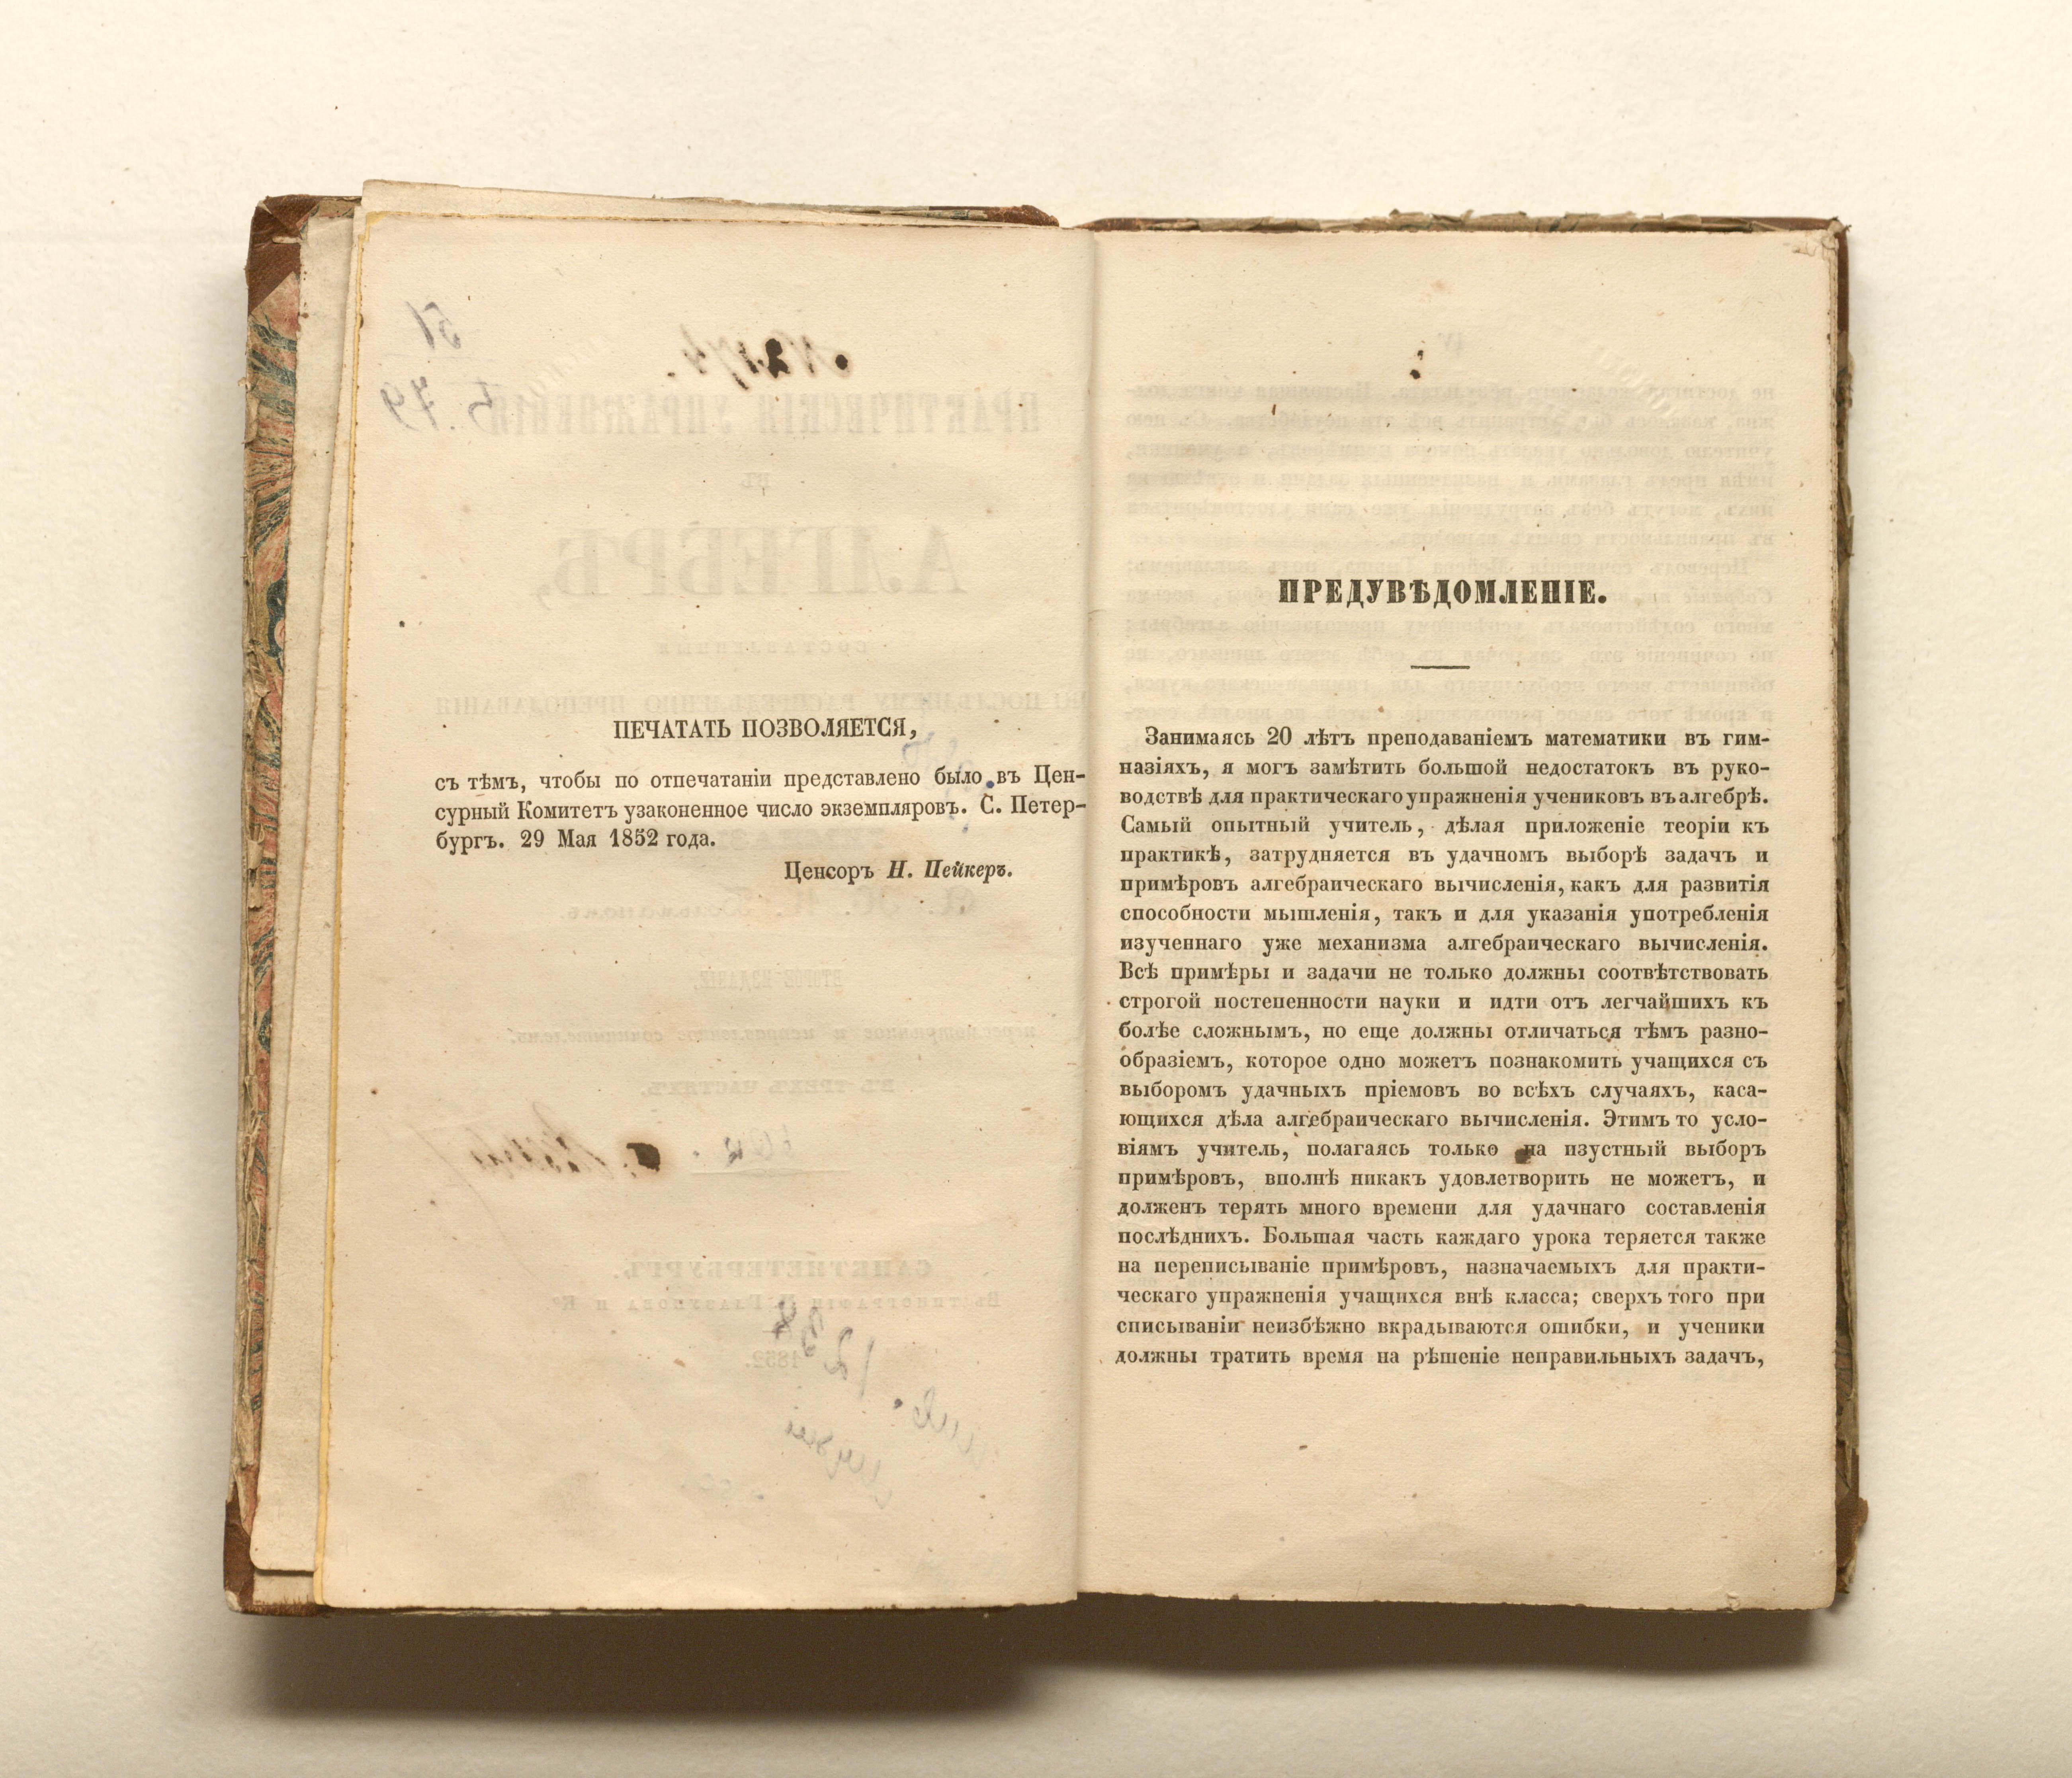 ПЕЧАТАТЬ ПОЗВОЛЯЕТСЯ,
съ тѣмъ, чтобы по отпечатаніи представлено было въ Цен-
сурный Комитетъ узаконенное число экземпляровъ. С. Петер-
бургъ. 29 Мая 1852 года.
Ценсоръ Н. Пейкеръ.
ПРЕДУВѢДОМЛЕНІЕ.
Занимаясь 20 лѣтъ преподаваніемъ математики въ гим-
назіяхъ, я могъ замѣтить большой недостатокъ въ руко-
водствѣ для практическаго упражненія учениковъ въ алгебрѣ.
Самый опытный учитель, дѣлая приложеніе теоріи къ
практикѣ, затрудняется въ удачномъ выборѣ задачъ и
примѣровъ алгебраическаго вычисленія, какъ для развитія
способности мышленія, такъ и для указанія употребленія
изученнаго уже механизма алгебраическаго вычисленія.
Всѣ примѣры и задачи не только должны соотвѣтствовать
строгой постепенности науки и идти отъ легчайшихъ къ
болѣе сложнымъ, но еще должны отличаться тѣмъ разно-
образіемъ, которое одно можетъ познакомить учащихся съ
выборомъ удачныхъ пріемовъ во всѣхъ случаяхъ, каса-
ющихся дѣла алгебраическаго вычисленія. Этимъ то усло-
віямъ учитель, полагаясь только на изустный выборъ
примѣровъ, вполнѣ никакъ удовлетворить не можетъ, и
долженъ терять много времени для удачнаго составленія
послѣднихъ. Большая часть каждаго урока теряется также
на переписываніе примѣровъ, назначаемыхъ для практи-
ческаго упражненія учащихся внѣ класса; сверхъ того при
списываніи неизбѣжно вкрадываются ошибки, и ученики
должны тратить время на рѣшеніе неправильныхъ задачъ,